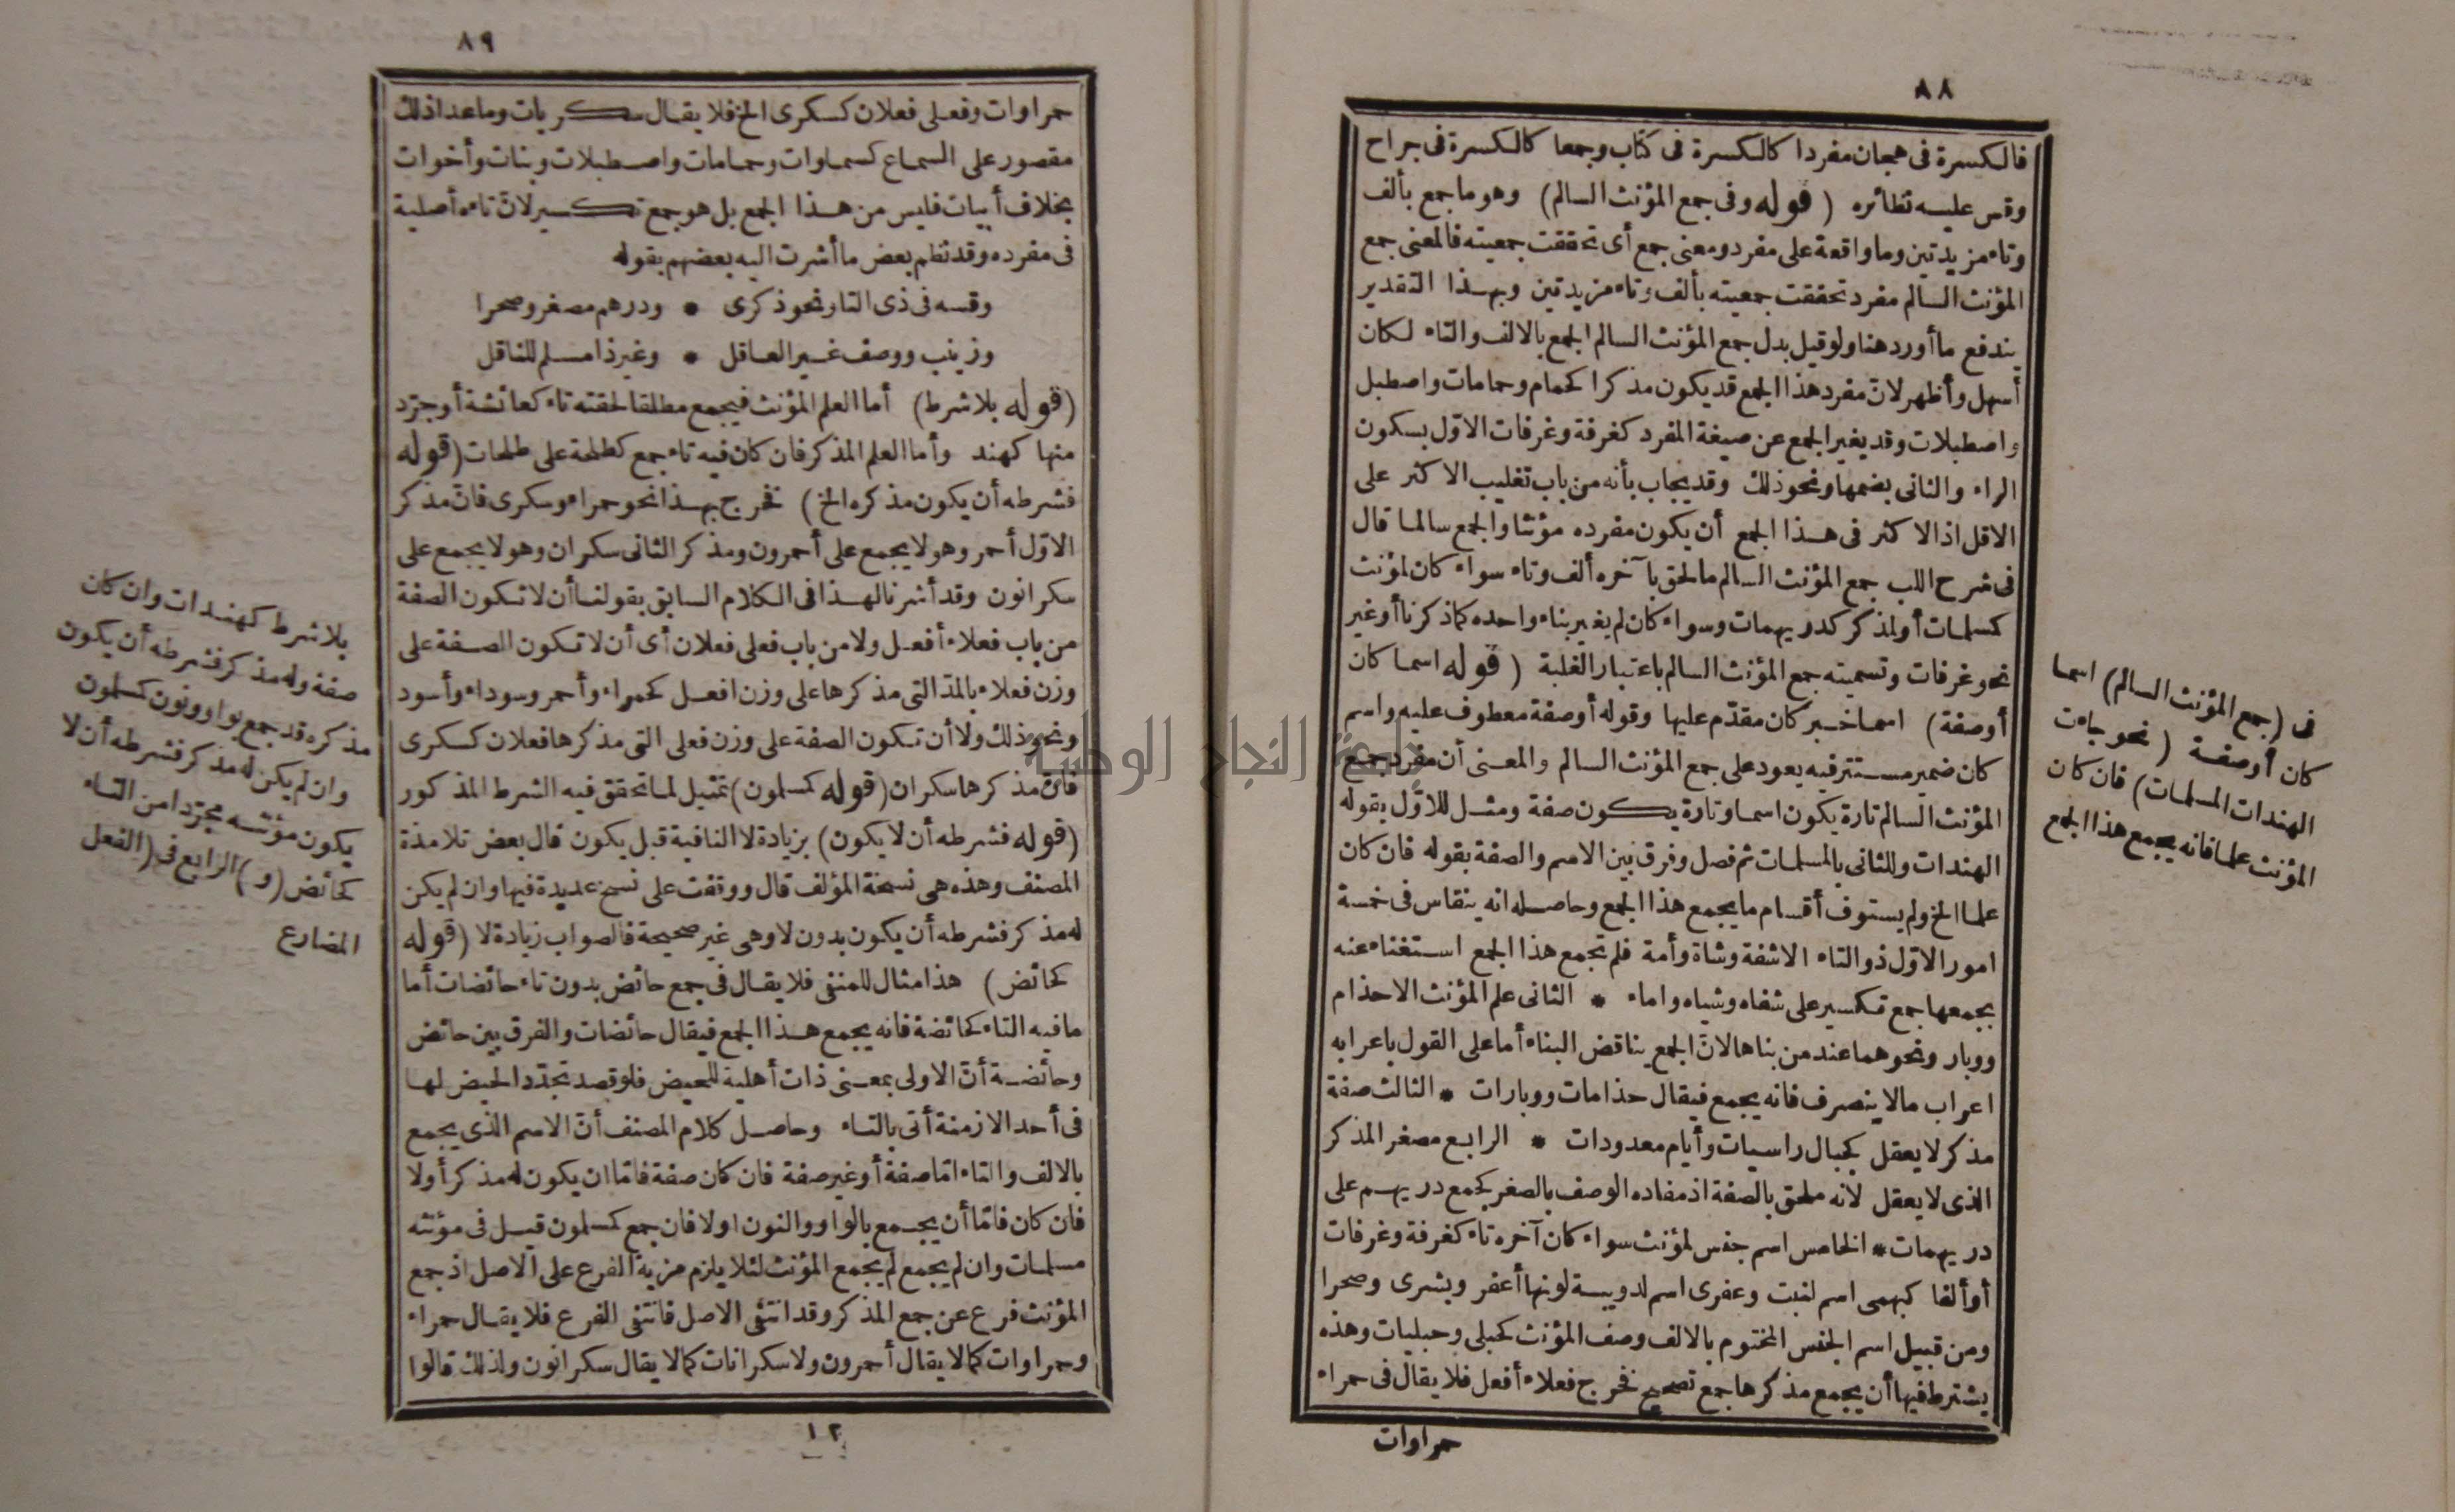 ٨٨
فالكسرة فى هجان مفردا كالكسرة فى كتاب وجمعا كالكسرة فى جراح
وقس عليه نظائره ( قوله وفى جمع المؤنث السالم) وهو ما جمع بألف
وتاء مزيدتين وما واقعة على مفرد ومعنى جمع أى تحققت جمعيته فالمعنى جمع
المؤنث السالم مفرد تحققت جمعيته بألف وتاء مزيدتين وبهذا التقدير
يندفع ما أورد هنا ولو قيل بدل جمع المؤنث السالم الجمع بالالف والتاء لكان
أسهل وأظهر لانّ مفرد هذا الجمع قد يكون مذكرا كحمام وحمامات واصطبل
واصطبلات وقد يغير الجمع عن صيغة المفرد كغرفة وغرفات الاوّل بسكون
الراء والثانى بضمها ونحو ذلك وقد يجاب بأنه من باب تغليب الاكثر على
الاقل اذ الاكثر فى هذا الجمع أن يكون مفرده مؤنثا والجمع سالما قال
فى شرح اللب جمع المؤنث السالم ما لحق بآخره ألف وتاء سواء كان لمؤنث
كمسلمات أو لمذكر كدريهمات وسواء كان لم يغير بناء واحده كما ذكرنا أو غير
نحو غرفات وتسميته جمع المؤنث السالم باعتبار الغلبة ( قوله اسما كان
أو صفة) اسما خبر كان مقدّم عليها وقوله أو صفة معطوف عليه واسم
كان ضمير مستتر فيه يعود على جمع المؤنث السالم والمعنى أن مفرد جمع
المؤنث السالم تارة يكون اسما وتارة يكون صفة ومثل للاوّل بقوله
الهندات وللثانى بالمسلمات ثم فصل وفرق بين الاسم والصفة بقوله فان كان
علما الخ ولم يستوف أقسام ما يجمع هذا الجمع وحاصله انه ينقاس فى خمسة
امور الاوّل ذو التاء الا شفة وشاة وأمة فلم تجمع هذا الجمع استغناء عنه
بجمعها جمع تكسير على شفاه وشياه واماء * الثانى علم المؤنث الا حذام
ووبار ونحوهما عند من بناها لانّ الجمع يناقض البناء أما على القول باعرابه
اعراب مالا ينصرف فانه يجمع فيقال حذامات ووبارات * الثالث صفة
مذكر لا يعقل كجبال راسيات وأيام معدودات * الرابع مصغر المذكر
الذى لا يعقل لانه ملحق بالصفة اذ مفاده الوصف بالصغر كجمع دريهم على
دريهمات * الخامس اسم جنس لمؤنث سواء كان آخره تاء كغرفة وغرفات
أو ألفا كبهمى اسم لنبت وعفرى اسم لدويبة لونها أعفر وبشرى وصحرا
ومن قبيل اسم الجنس المختوم بالالف وصف المؤنث كحبلى وحبليات وهذه
يشترط فيها أن يجمع مذكرها جمع تصحيح فخرج فعلاء أفعل فلا يقال فى حمراء
حمراوات
فى (جمع المؤنث السالم) اسما
كان أو صفة ( نحو جاءت
الهندات المسلمات) فان كان
المؤنث علما فانه يجمع هذا الجمع
٨٩
حمراوات وفعلى فعلان كسكرى الخ فلا يقال سكريات وما عدا ذلك
مقصور على السماع كسماوات وحمامات واصطبلات وبنات وأخوات
بخلاف أبيات فليس من هذا الجمع بل هو جمع تكسير لانّ تاءه أصلية
فى مفرده وقد نظم بعض ما أشرت اليه بعضهم بقوله
وقسه فى ذى التا ونحو ذكرى * ودرهم مصغر وصحرا
وزينب ووصف غير العاقل * وغير ذا مسلم للناقل
(قوله بلا شرط) أما العلم المؤنث فيجمع مطلقا لحقته تاء كعائشة أو جرّد
منها كهند وأما العلم المذكر فان كان فيه تاء جمع كطلحة على طلحات (قوله
فشرطه أن يكون مذكره الخ) فخرج بهذا نحو حمراء وسكرى فانّ مذكر
الاوّل أحمر وهو لا يجمع على أحمرون ومذكر الثانى سكران وهو لا يجمع على
سكرانون وقد أشرنا لهذا فى الكلام السابق بقولنا أن لا تكون الصفة
من باب فعلاء أفعل ولا من باب فعلى فعلان أى أن لا تكون الصفة على
وزن فعلاء بالمدّ التى مذكرها على وزن افعل كحمراء وأحمر وسوداء وأسود
ونحو ذلك ولا أن تكون الصفة على وزن فعلى التى مذكرها فعلان كسكرى
فانّ مذكرها سكران (قوله كمسلمون) تمثيل لما تحقق فيه الشرط المذكور
(قوله فشرطه أن لا يكون) بزيادة لا النافية قبل يكون قال بعض تلامذة
المصنف وهذه هى نسخة المؤلف قال ووقفت على نسخ عديدة فيها وان لم يكن
له مذكر فشرطه أن يكون بدون لا وهى غير صحيحة فالصواب زيادة لا (قوله
كحائض) هذا مثال للمنفى فلا يقال فى جمع حائض بدون تاء حائضات أما
ما فيه التاء كحائضة فانه يجمع هذا الجمع فيقال حائضات والفرق بين حائض
وحائضة أنّ الاولى بمعنى ذات أهلية للحيض فلو قصد تجدّد الحيض لها
فى أحد الازمنة أتى بالتاء وحاصل كلام المصنف أنّ الاسم الذى يجمع
بالالف والتاء امّا صفة أو غير صفة فان كان صفة فامّا ان يكون له مذكر أو لا
فان كان فامّا أن يجمع بالواو والنون اولا فان جمع كمسلمون قيل فى مؤنثه
مسلمات وان لم يجمع لم يجمع المؤنث لئلا يلزم مزية الفرع على الاصل اذ جمع
المؤنث فرع عن جمع المذكر وقد انتفى الاصل فانتفى الفرع فلا يقال حمراء
وحمراوات كما لا يقال أحمرون ولا سكرانات كما لا يقال سكرانون ولذلك قالوا
١٢
بلا شرط كهندات وان كان
صفة وله مذكر فشرطه أن يكون
مذكره قد جمع بواو ونون كمسلمون
وان لم يكن له مذكر فشرطه أن لا
يكون مؤنثه مجرّدا من التاء
كحائض (و) الرابع فى (الفعل
المضارع
جامعة النجاح الوطنية